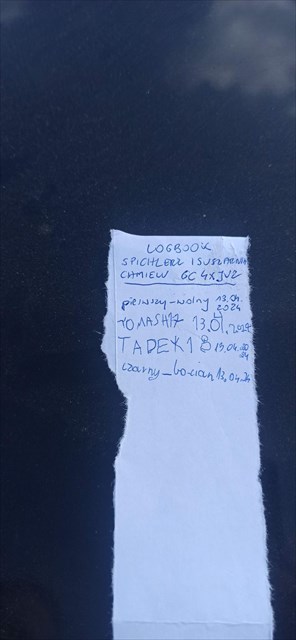 LOGBOOK
SPICHLERZ I SUSZARNIA
CHMIEW GC4XJVZ
pierwszy-wolny 13.04.
2024
TOMASH17 13.04.2024
TADEK18 13.04.20
24
czarny_bocian 13.04.24